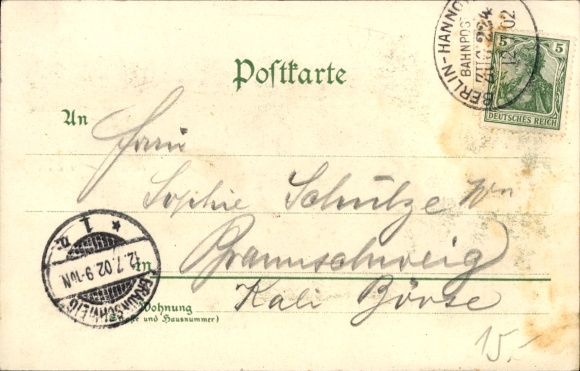 BERLIN-HANNO
BAHNPOST
ZUG 224
12 02
5 5
DEUTSCHES REICH
Postkarte
An
Frau
Sophie Schultze Wn
in Braunschweig
Kali Börse
Wohnung
(Straße und Hausnummer)
BRAUNSCHWEIG
12.7.02.9-10N
* 1 n.
15.-